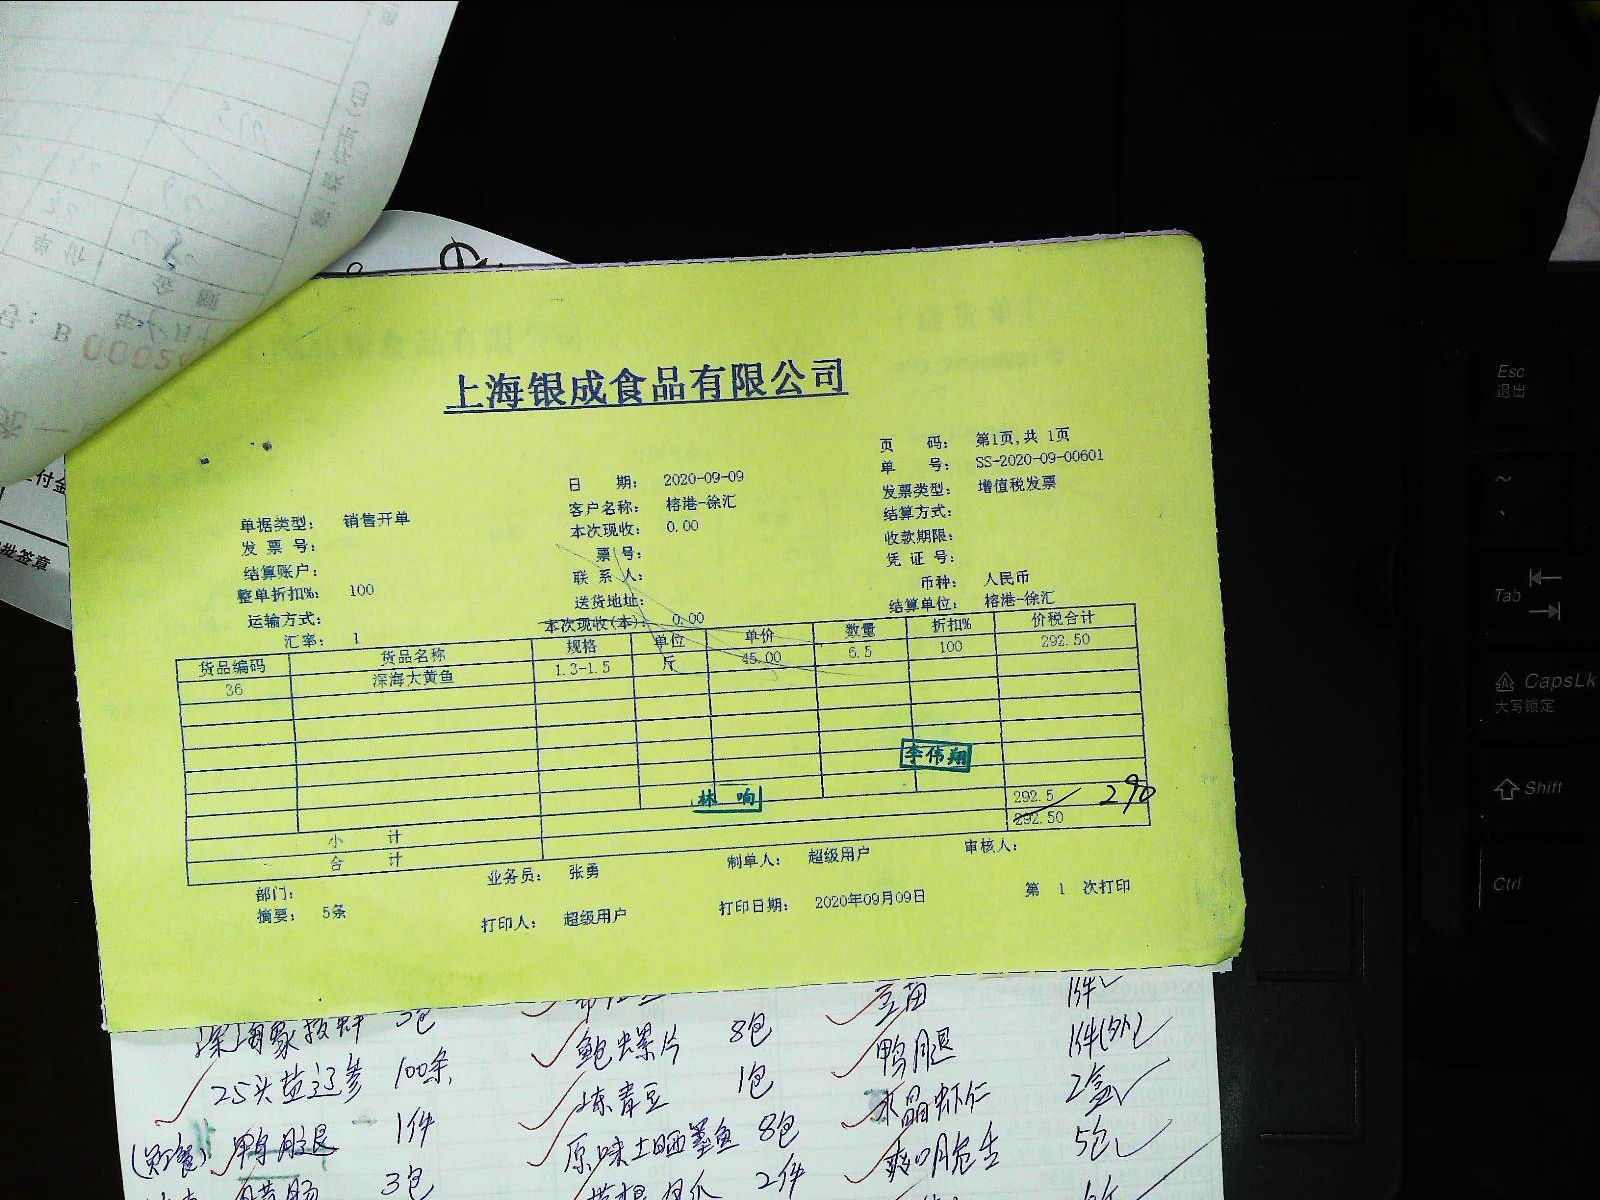 号: B
0005
付金
批签章
上海银成食品有限公司
页 码: 第1页,共 1页
日 期: 2020-09-09 单 号: SS-2020-09-00601
单据类型: 销售开单 客户名称: 榕港-徐汇 发票类型: 增值税发票
发 票 号: 本次现收: 0.00 结算方式:
结算账户: 票 号: 收款期限:
整单折扣%: 100 联 系 人: 凭 证 号:
运输方式: 送货地址: 币种: 人民币
汇率: 1 本次现收(本): 0.00 结算单位: 榕港-徐汇
货品编码 货品名称 规格 单位 单价 数量 折扣% 价税合计
36 深海大黄鱼 1.3-1.5 斤 45.00 6.5 100 292.50
李伟翔
林 响
小 计 292.5 290
合 计 292.50
部门: 业务员: 张勇 制单人: 超级用户 审核人:
摘要: 5条 打印人: 超级用户 打印日期: 2020年09月09日 第 1 次打印
1件
鲍螺片 8包 鸭腿 1件(外)
25头盐辽参 100条 冻青豆 1包 水晶虾仁 2盒
鸭腿 1件 原味土晒墨鱼 8包 5包
3包 2件
Esc
退出
Tab
CapsLk
大写锁定
Shift
Ctrl